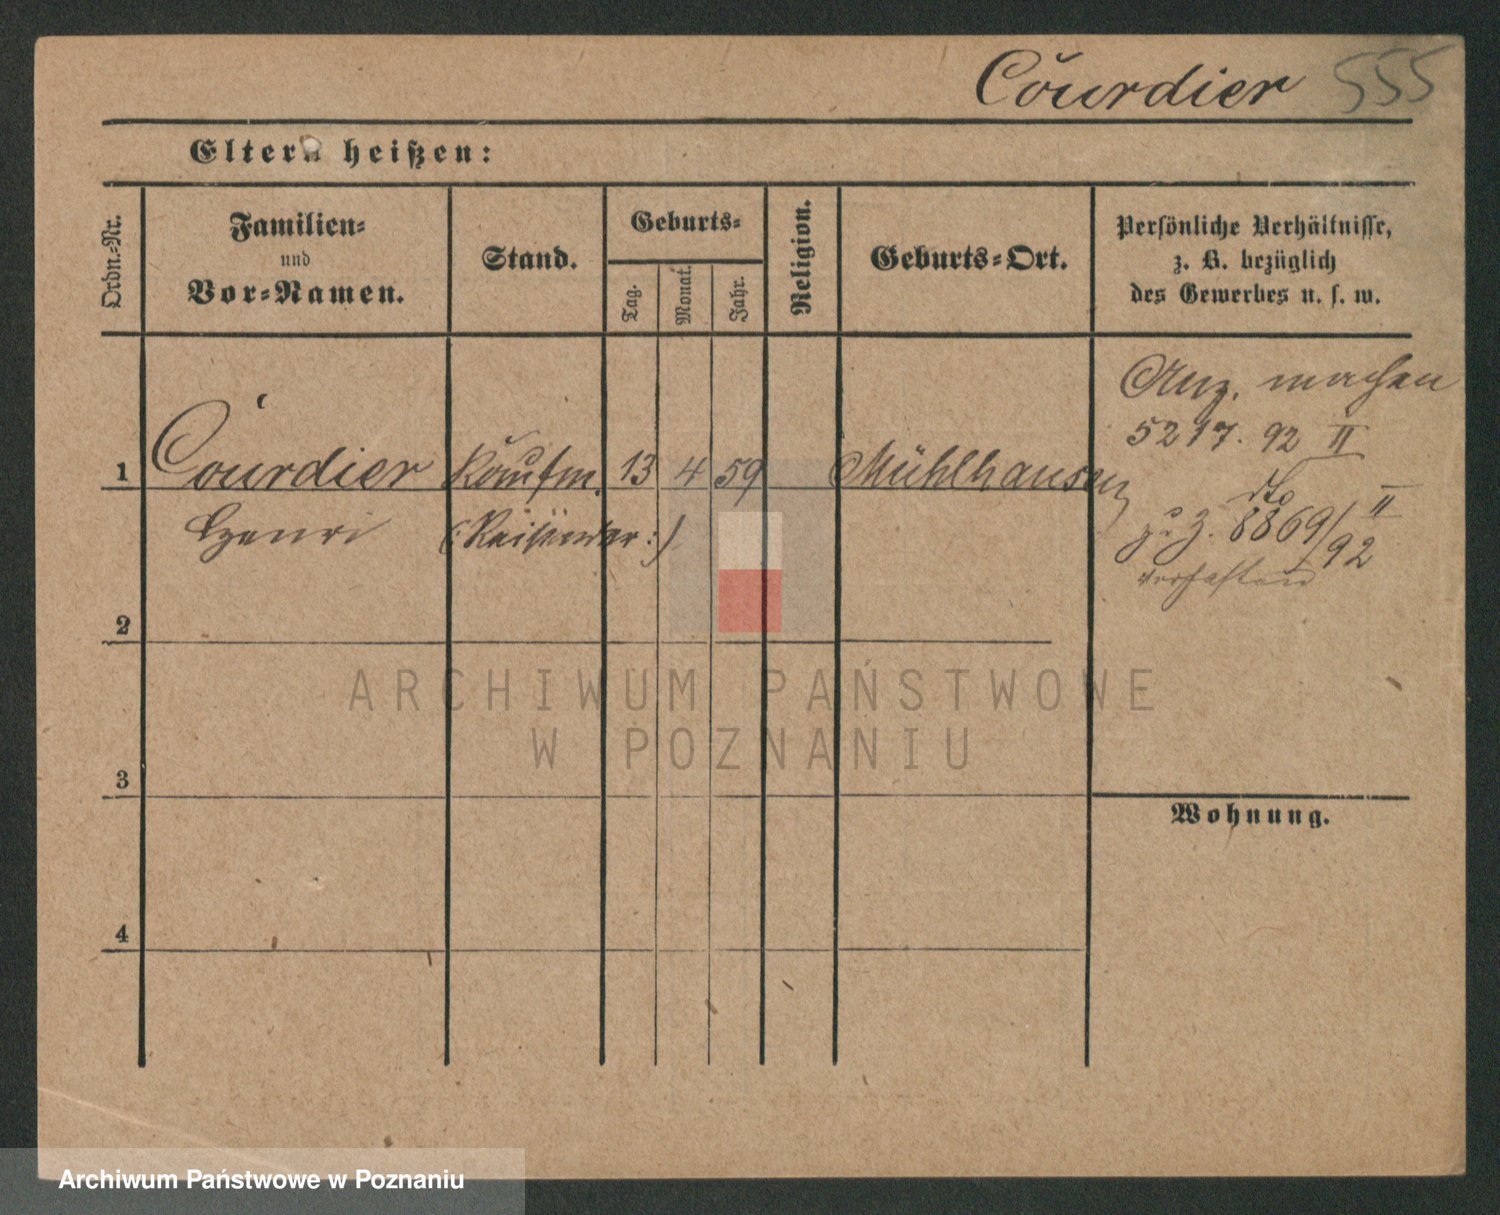 Courdier 555
Eltern heißen:
Ordn.-Nr.
Familien-
und
Vor-Namen.
Stand.
Geburts-
Tag.
Monat.
Jahr.
Religion.
Geburts-Ort.
Persönliche Verhältnisse,
z. B. bezüglich
des Gewerbes u. s. w.
1 Courdier Kaufm. 13 4 59 Mühlhausen
Henri (: Reisender :)
Anz. machen
5217. 92 II
dto II
zu Z. 8869/92
verhaften
2
3
4
Wohnung.
ARCHIWUM PAŃSTWOWE
W POZNANIU
Archiwum Państwowe w Poznaniu